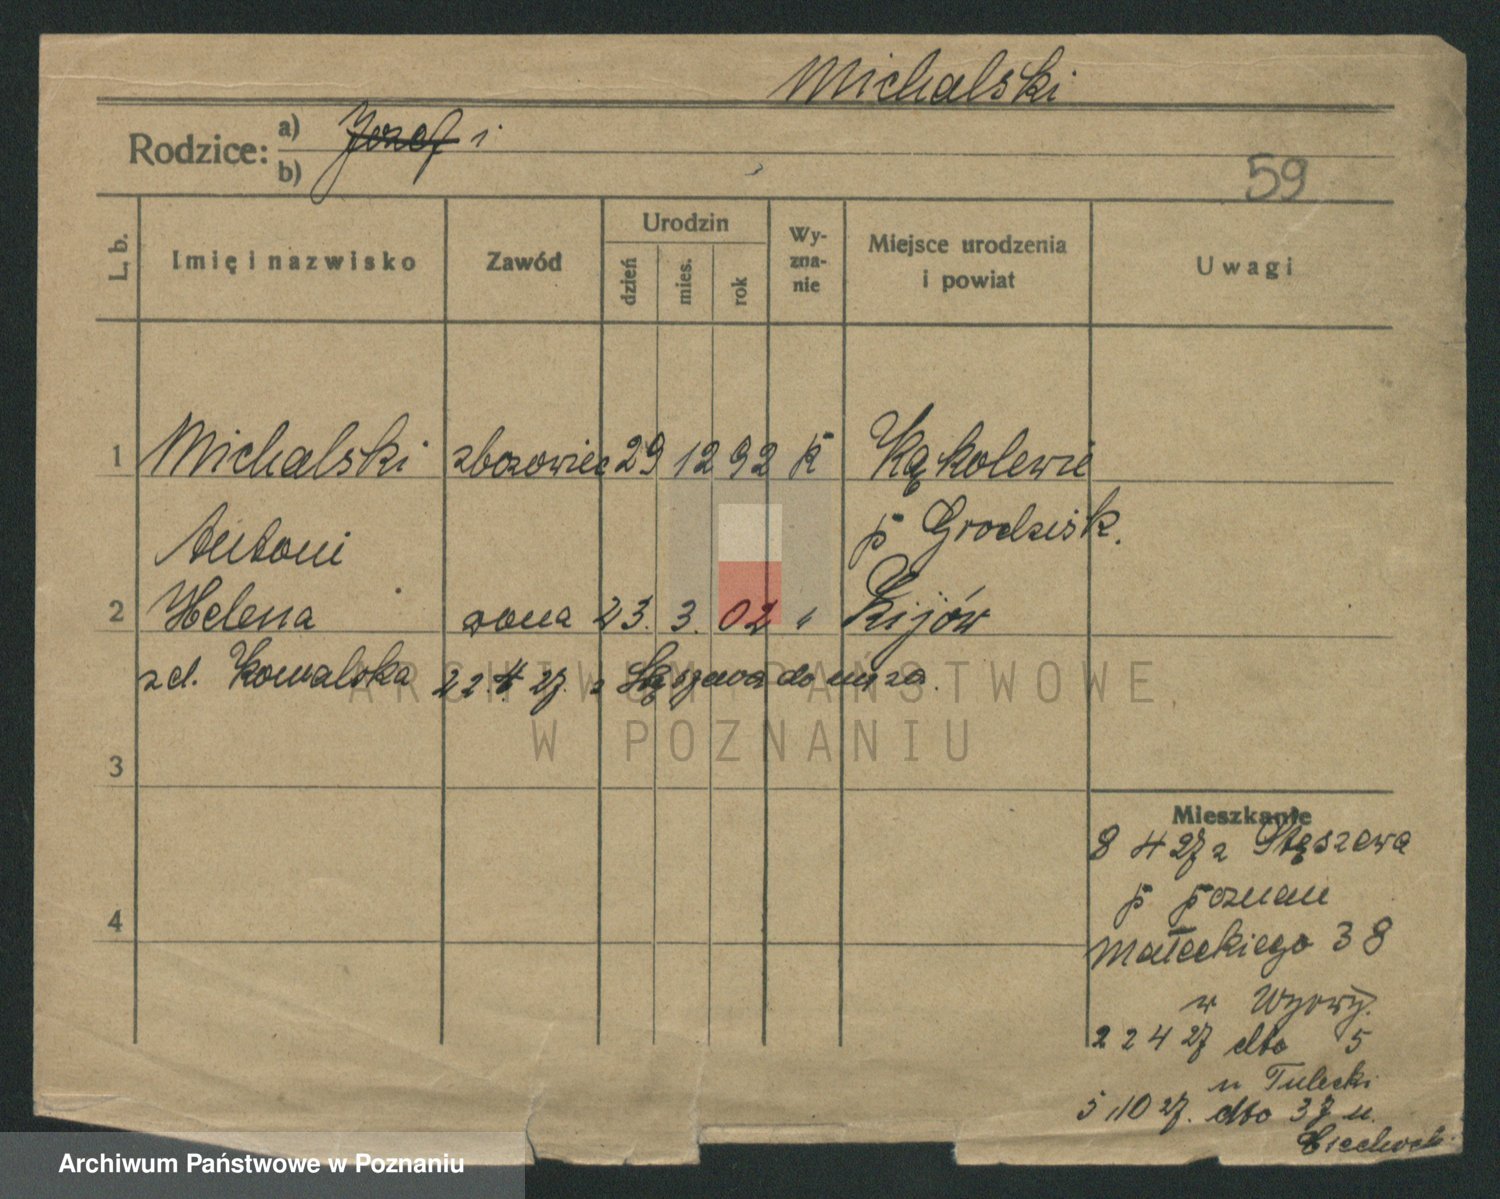 Michalski
Rodzice: a) Jozef i
b)
59
L. b.
Imię i nazwisko
Zawód
Urodzin
dzień
mies.
rok
Wy-
zna-
nie
Miejsce urodzenia
i powiat
Uwagi
1 Michalski zbozowiec 29 12 92 k Kąkolewie
Antoni p Grodzisk.
2 Helena zona 23. 3. 02 " Kijów
zd. Kowalska 22.4 27. z Stęszewa do męza.
3
4
Mieszkanie
8 4 27 z Stęszewa
p poznan
Małeckiego 38
u
22 4 27 dto 5
u Tulecki
5 10 27. dto 37 u.
ARCHIWUM PAŃSTWOWE
W POZNANIU
Archiwum Państwowe w Poznaniu